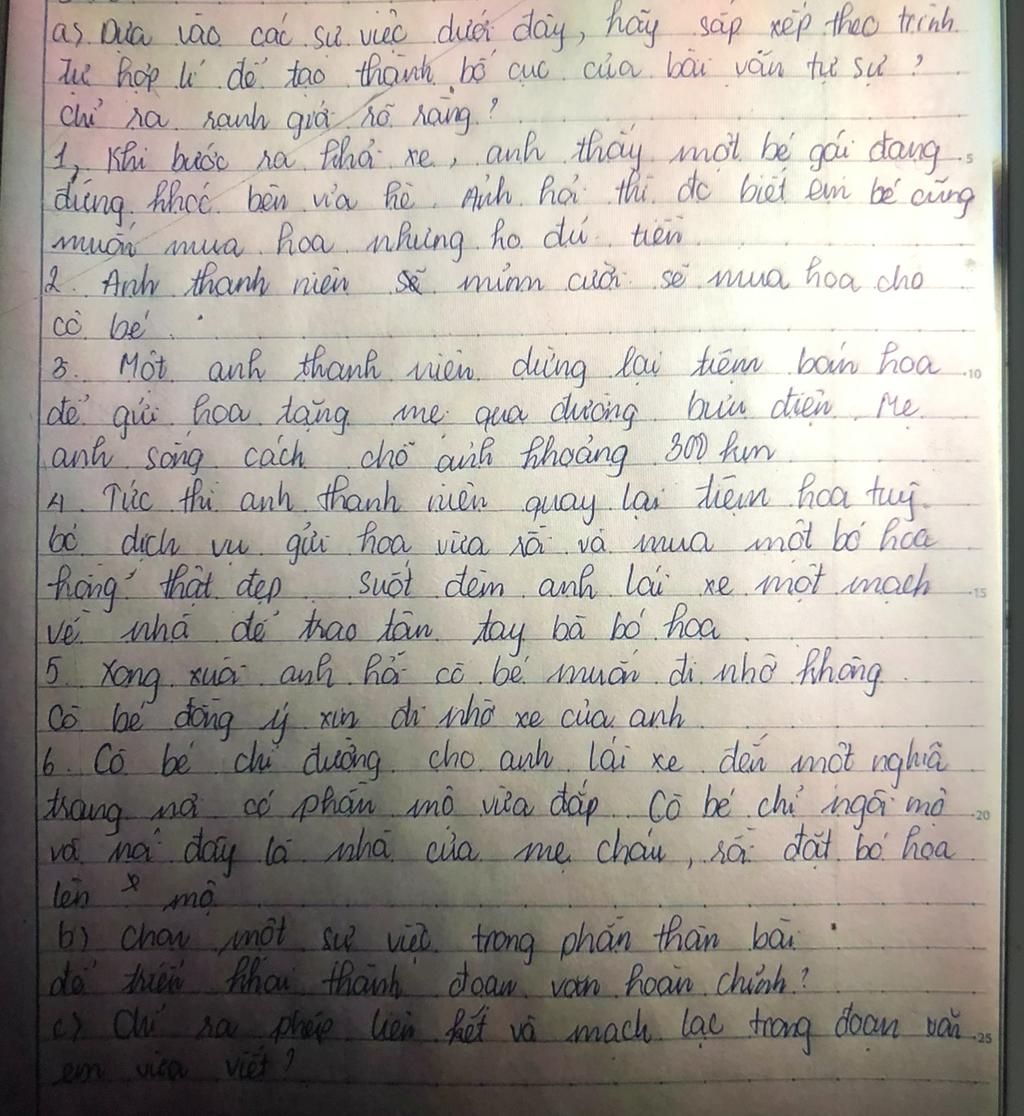 a) Dựa vào các sự việc dưới đây, hãy sắp xếp theo trình
tự hợp lí để tạo thành bố cục của bài văn tự sự ?
chỉ ra ranh giới rõ ràng ?
1, Khi bước ra khỏi xe, anh thấy một bé gái đang 5
đứng khóc bên vỉa hè. Anh hỏi thì đc biết em bé cũng
muốn mua hoa nhưng ko đủ tiền
2. Anh thanh niên mỉm cười sẽ mua hoa cho
cô bé.
3. Một anh thanh niên dừng lại tiệm bán hoa 10
để gửi hoa tặng mẹ qua đường bưu điện. Mẹ
anh sống cách chỗ anh khoảng 300 km
4. Tức thì anh thanh niên quay lại tiệm hoa huỷ
bỏ dịch vụ gửi hoa vừa rồi và mua một bó hoa
hồng thật đẹp. Suốt đêm anh lái xe một mạch 15
về nhà để trao tận tay bà bó hoa.
5. Xong xuôi anh hỏi cô bé muốn đi nhờ không.
Cô bé đồng ý xin đi nhờ xe của anh
6. Cô bé chỉ đường cho anh lái xe đến một nghĩa
trang nơi có phần mộ vừa đắp. Cô bé chỉ ngôi mộ 20
và nói đây là nhà của mẹ cháu, rồi đặt bó hoa
lên mộ
b) Chọn một sự việc trong phần thân bài
để triển khai thành đoạn văn hoàn chỉnh ?
c) Chỉ ra phép liên kết và mạch lạc trong đoạn văn 25
em vừa viết ?